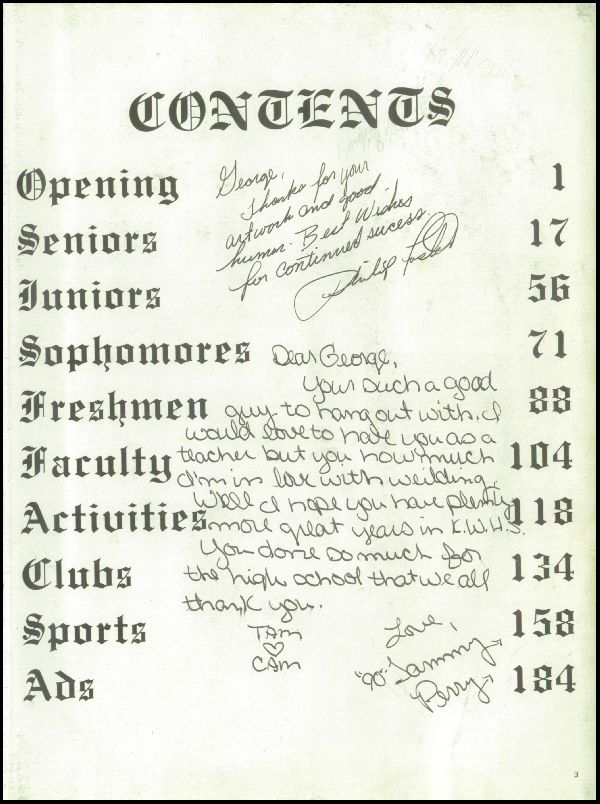 CONTENTS
Opening 1
George,
Thanks for your
artwork and good
humor. Best Wishes
for continued sucess.
Philip
Seniors 17
Juniors 56
Sophomores 71
Dear George,
Your such a good
Freshmen 88
guy to hang out with. I
would love to have you as a
Faculty 104
teacher but you now much
I'm in love with weilding.
Well I hope you have plenty
Activities 118
more great years in K.W.H.S.
You done so much for
Clubs 134
the high school that we all
thank you.
Sports 158
TAM
♡
CAM
Love,
"90" Tammy
Perry
Ads 184
3